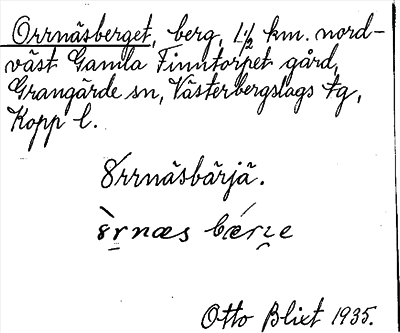 Orrnäsberget, berg, 1 1/2 km. nord-
väst Gamla Finntorpet gård,
Grangärde sn, Västerbergslags tg,
Kopp l.
Otto Blixt 1935.